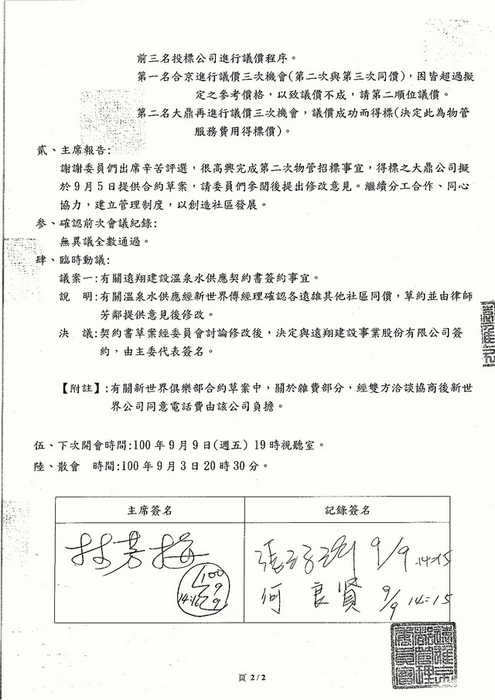 前三名投標公司進行議價程序。
第一名合京進行議價三次機會(第二次與第三次同價)，因皆超過擬
定之參考價格，以致議價不成，請第二順位議價。
第二名大鼎再進行議價三次機會，議價成功而得標(決定此為物管
服務費用得標價)。
貳、主席報告:
謝謝委員們出席辛苦評選，很高興完成第二次物管招標事宜，得標之大鼎公司擬
於9月5日提供合約草案，請委員們參閱後提出修改意見。繼續分工合作、同心
協力，建立管理制度，以創造社區發展。
參、確認前次會議紀錄:
無異議全數通過。
肆、臨時動議:
議案一:有關遠翔建設溫泉水供應契約書簽約事宜。
說　明:有關溫泉水供應經新世界傅經理確認各遠雄其他社區同價，草約並由律師
芳鄰提供意見後修改。
決　議:契約書草案經委員會討論修改後，決定與遠翔建設事業股份有限公司簽
約，由主委代表簽名。
【附註】:有關新世界俱樂部合約草案中，關於雜費部分，經雙方洽談協商後新世
界公司同意電話費由該公司負擔。
伍、下次開會時間:100年9月9日(週五)19時視聽室。
陸、散會　時間:100年9月3日20時30分。
主席簽名
記錄簽名
林芳梅
100
9/9
張 9/9 14:15
何良賢 9/9 14:15
頁 2/2